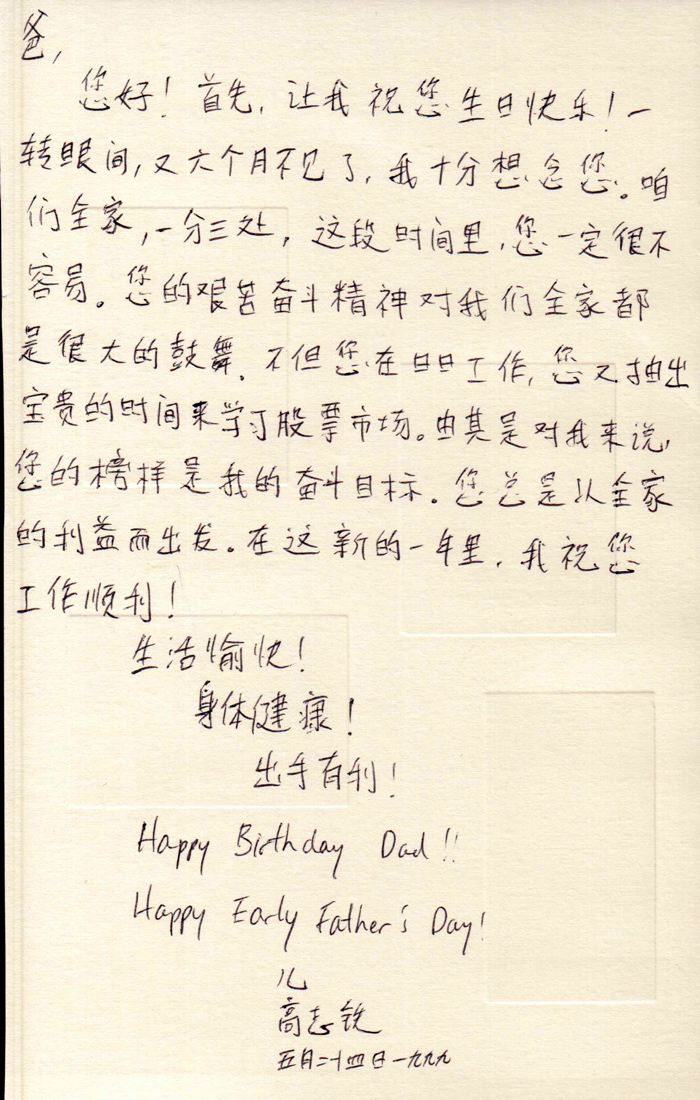 爸,
您好! 首先, 让我祝您生日快乐! 一
转眼间, 又六个月不见了, 我十分想念您。咱
们全家, 一分三处, 这段时间里, 您一定很不
容易。您的艰苦奋斗精神对我们全家都
是很大的鼓舞。不但您在日日工作, 您又抽出
宝贵的时间来学习股票市场。由其是对我来说,
您的榜样是我的奋斗目标。您总是从全家
的利益而出发。在这新的一年里, 我祝您
工作顺利!
生活愉快!
身体健康!
出手有利!
Happy Birthday Dad!!
Happy Early Father's Day!
儿
高志锐
五月二十四日一九九九